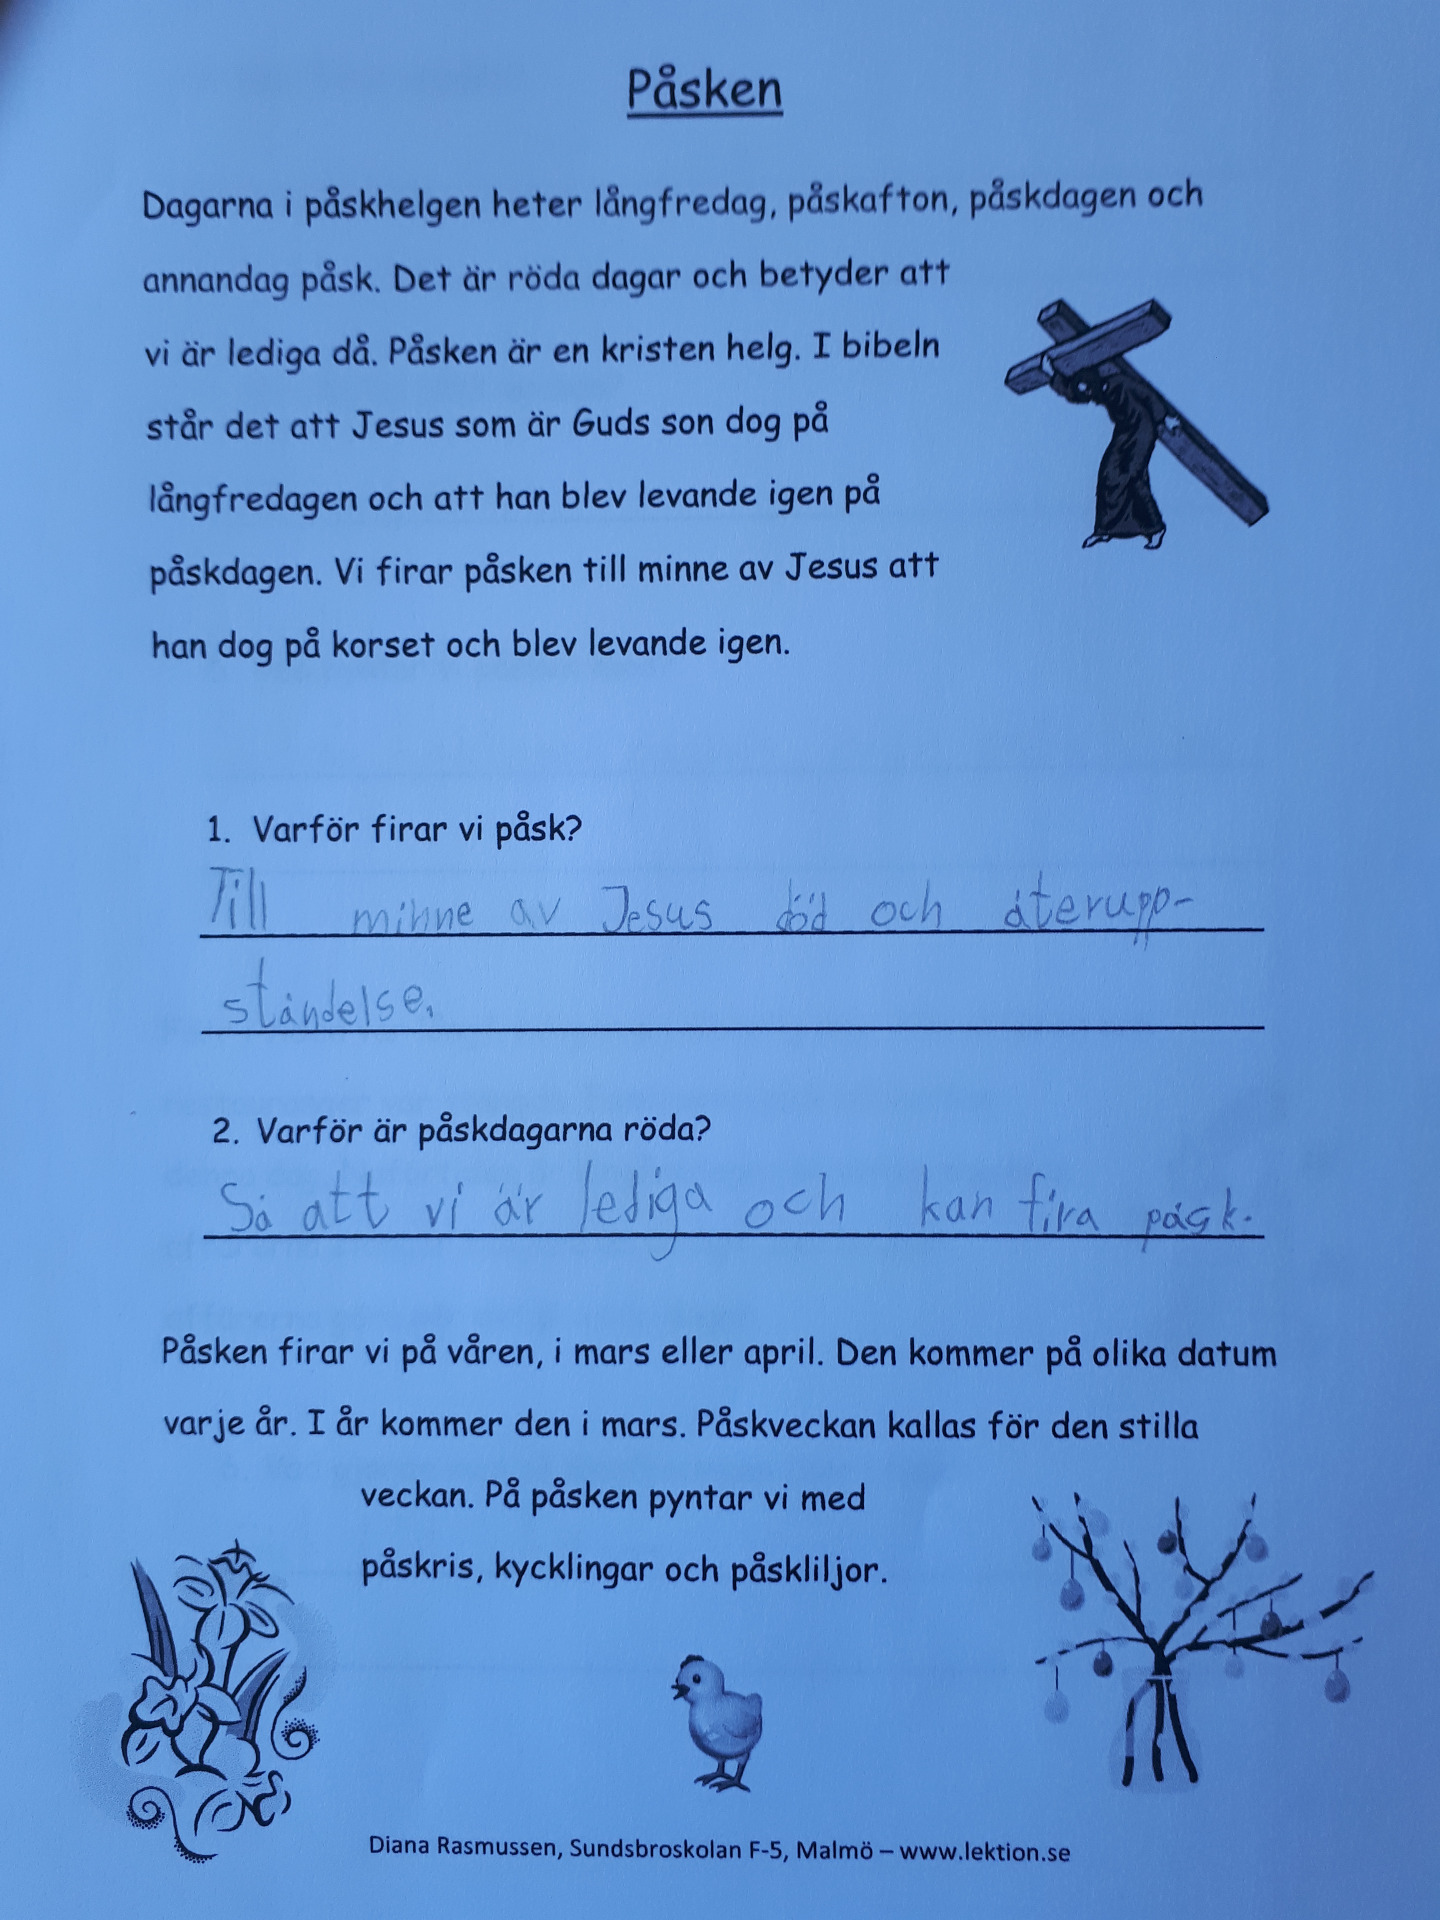 Påsken
Dagarna i påskhelgen heter långfredag, påskafton, påskdagen och
annandag påsk. Det är röda dagar och betyder att
vi är lediga då. Påsken är en kristen helg. I bibeln
står det att Jesus som är Guds son dog på
långfredagen och att han blev levande igen på
påskdagen. Vi firar påsken till minne av Jesus att
han dog på korset och blev levande igen.
1. Varför firar vi påsk?
Till minne av Jesus död och återupp-
ståndelse.
2. Varför är påskdagarna röda?
Så att vi är lediga och kan fira påsk.
Påsken firar vi på våren, i mars eller april. Den kommer på olika datum
varje år. I år kommer den i mars. Påskveckan kallas för den stilla
veckan. På påsken pyntar vi med
påskris, kycklingar och påskliljor.
Diana Rasmussen, Sundsbroskolan F-5, Malmö – www.lektion.se